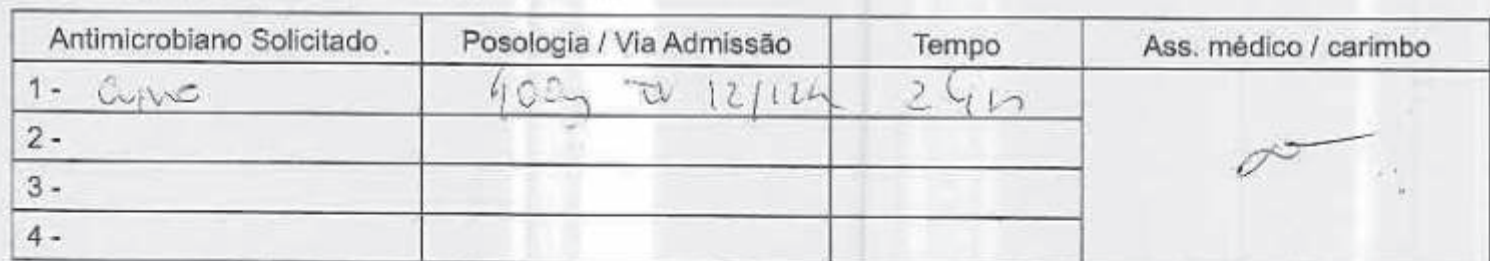 Antimicrobiano Solicitado Posologia / Via Admissão Tempo Ass. médico / carimbo
1 - Cipro 400mg 12/12h 24h
2 -
3 -
4 -